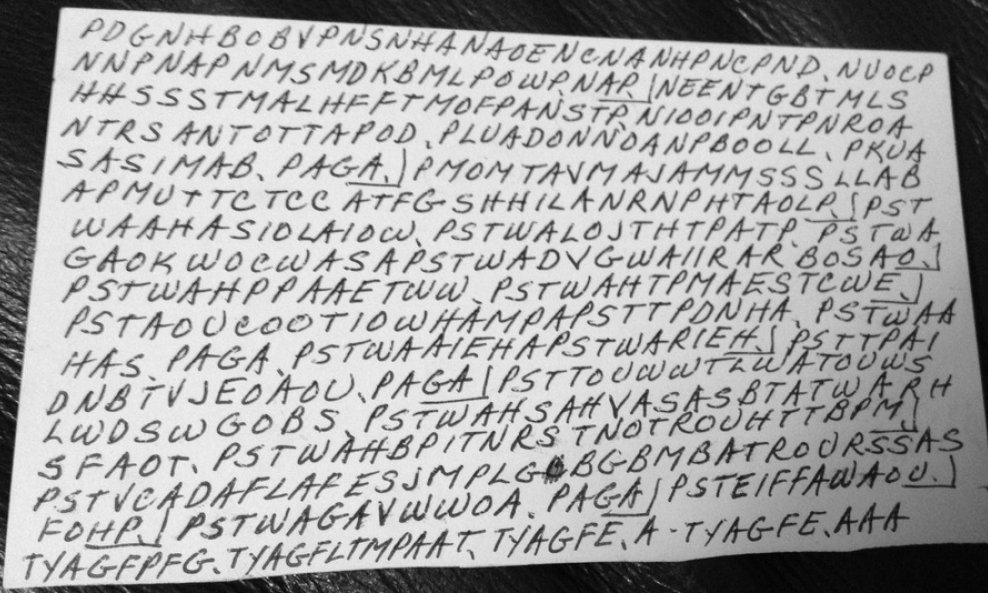 PDGNHBOBVPNSNHANAOENCNANHPNCPND. NUOCP
NNPNAPNMSMDKBMLPOWP.NAP. | NEENTGBTMLS
HHSSSTMALHFFTMOFPANSTP. NIOOIPNTPNROA
NTRSANTOTTAPOD. PLUADONNOANPBOOLL. PKUA
SASIMAB. PAGA. | PMOMTAVMAJAMMSSSLLAB
APMUTTCTCCATFGSHHILANRNPHTAOLP. | PST
WAAHASIOLAIOW. PSTWALOJTHTPATP. PSTWA
GAOKWOCWASAPSTWADVGWAIIRARBOSAO. |
PSTWAHPPAAETWW. PSTWAHTPMAESTCWE. |
PSTAOUCOOTIOWHAMPAPSTTPDNHA. PSTWAA
HAS. PAGA. PSTWAAIEHAPSTWARIEH. | PSTTPAI
DNBTVJEOAOU. PAGA | PSTTOUWWTLWATOUWS
LWDSWGOBS. PSTWAHSAHVASASBTATWARH
SFAOT. PSTWAHBPITNRSTNOTROUHTTBPM. |
PSTVCADAFLAFESJMPLGBGBMBATROURSSAS
FOHP. | PSTWAGAVWWOA. PAGA | PSTEIFFAWAOU. |
TYAGFPFG. TYAGFLTMPAAT. TYAGFE. A-TYAGFE. AAA